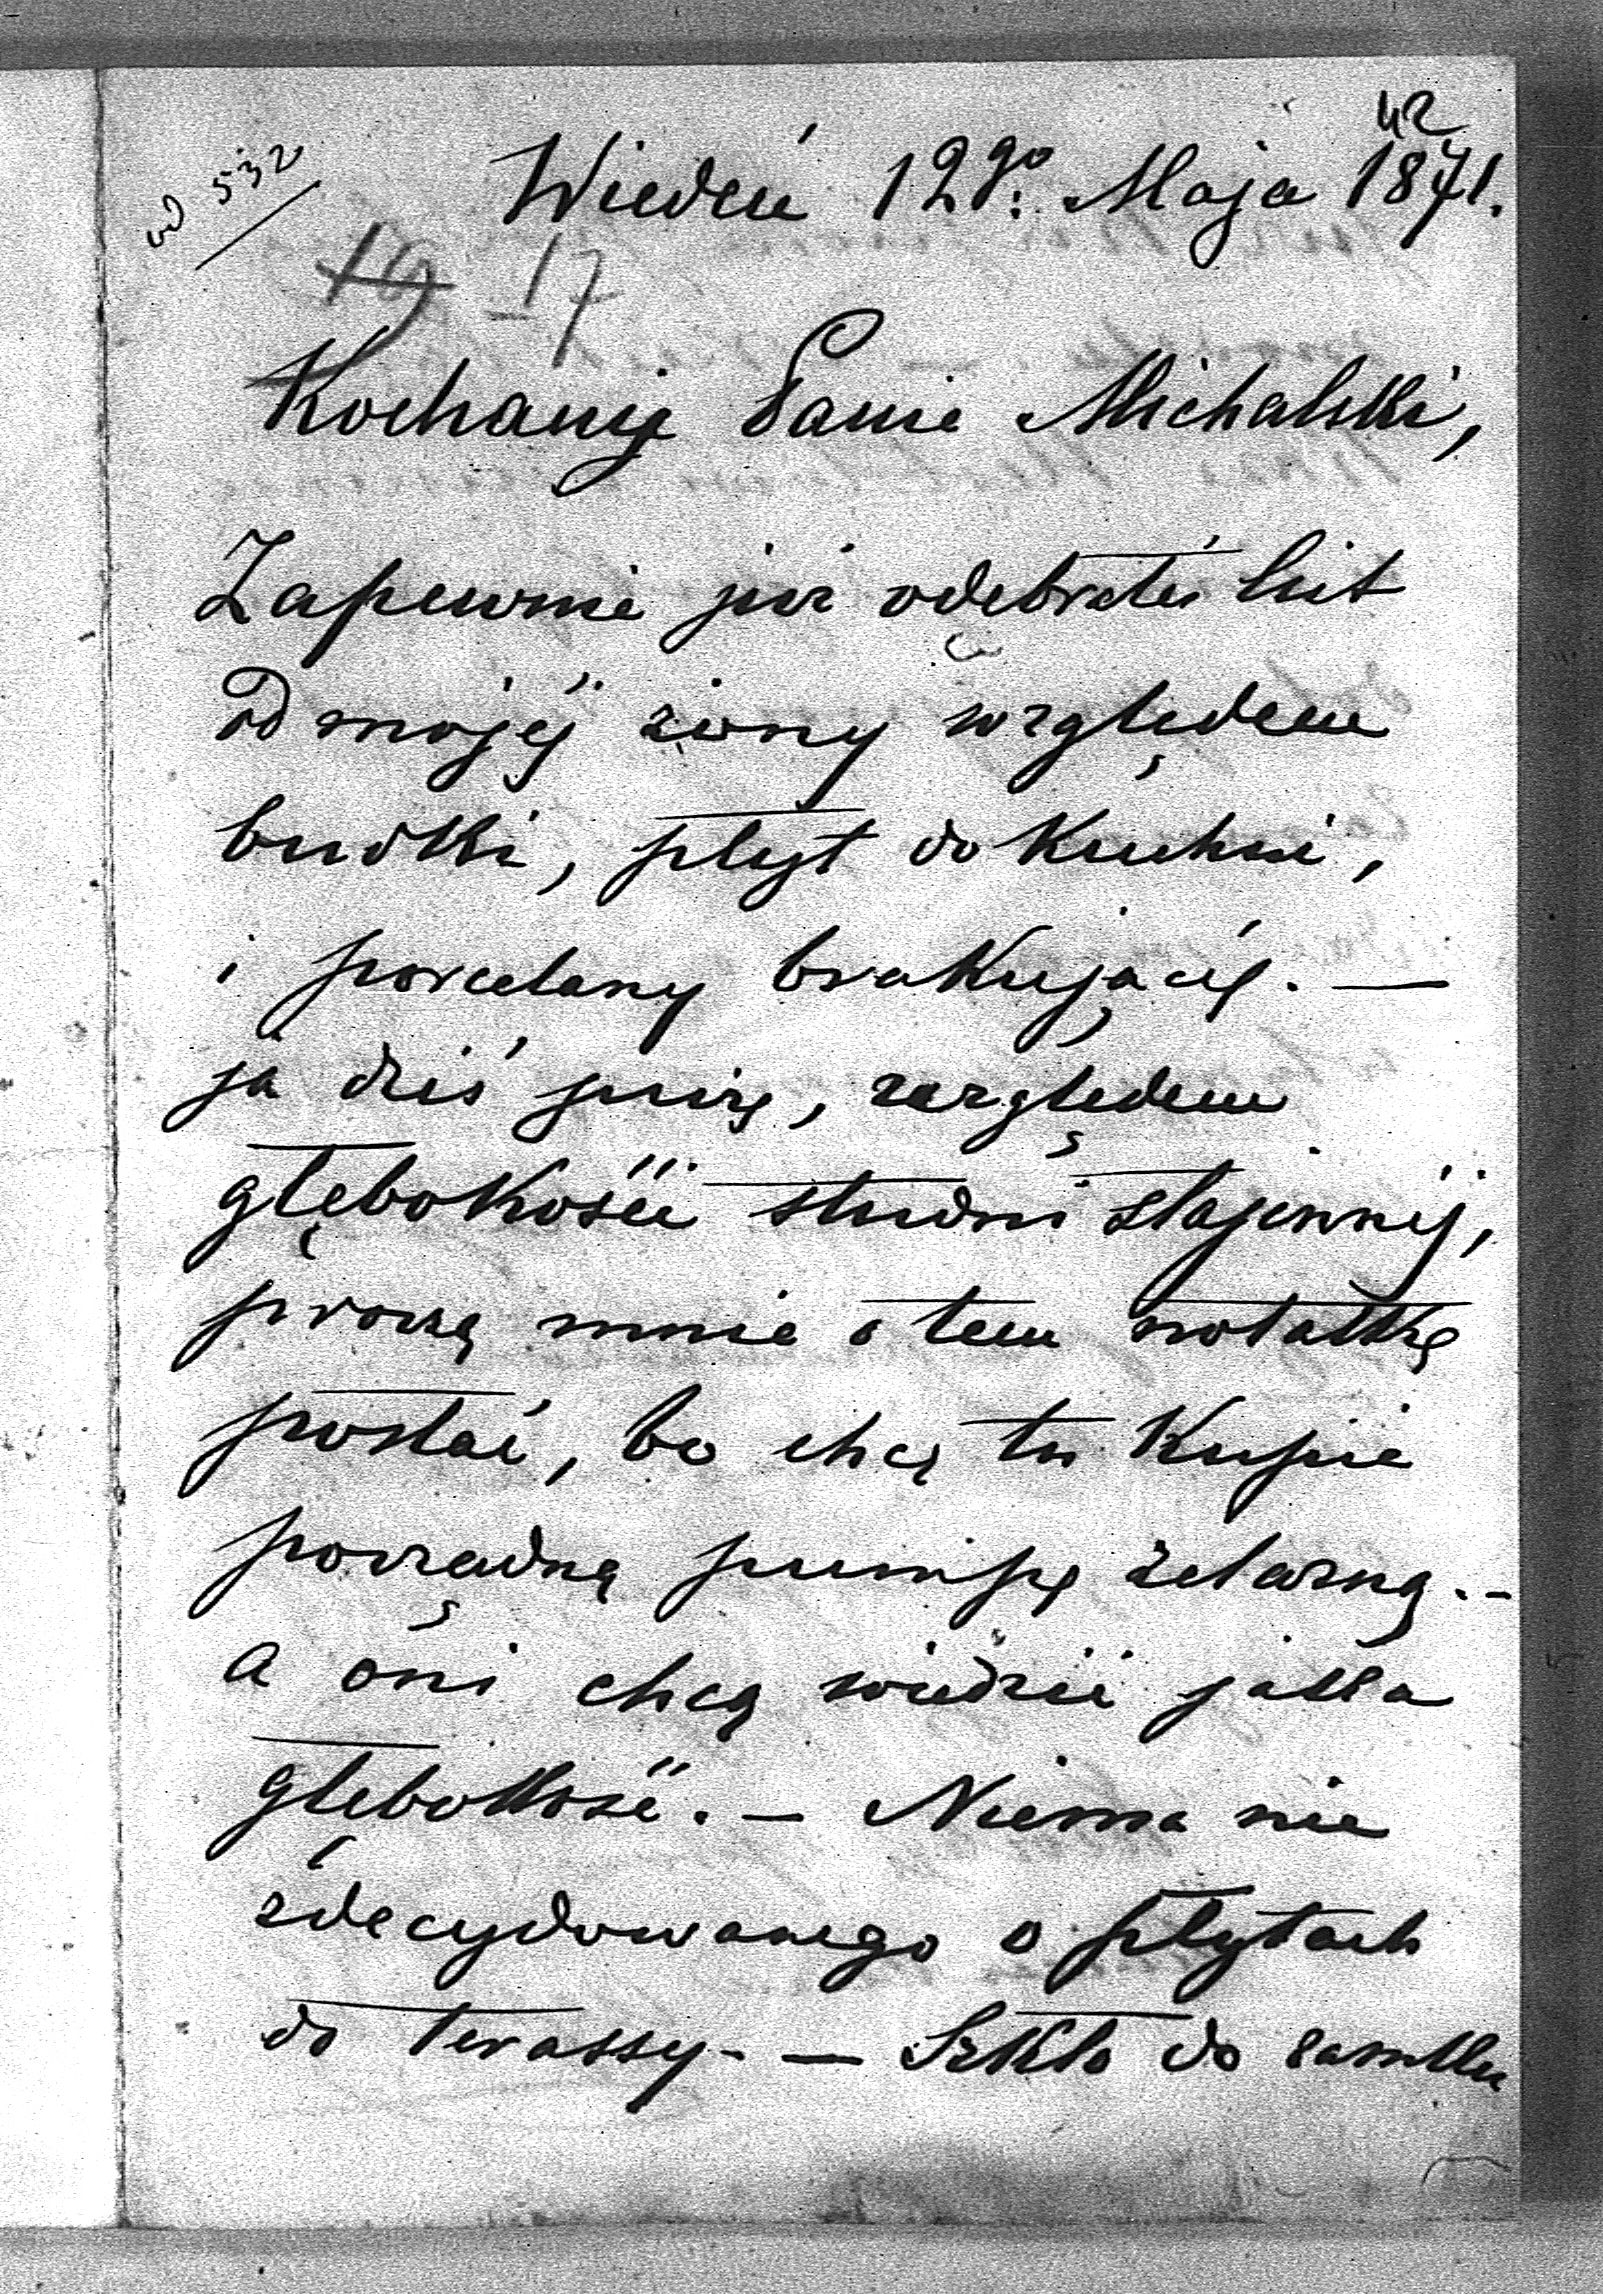 42
ad 532
Wiedeń 12go. Maja 1871.
19 17
Kochany Panie Michalski,
Zapewnie już odebrałeś list
od mojéj żony względem
budki, płyt do Kuchni,
i porcelany braKującéj. —
ja dziś piszę, względem
głęboKości studni stajennéj,
proszę mnie o tem notatkę
posłać, bo chcę tu Kupić
porządną pumpę żelazną. –
a oni chcą wiedzieć jaka
głębokość. – Niema nic
zdecydowanego o płytach
do terassy. — Szkło do zamku